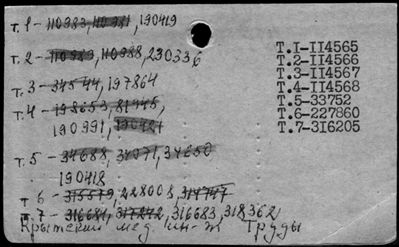 т. 1 - 110383, 110381, 190419
т. 2 - 110983, 110988, 230336
т. 3 - 34544, 197864
т. 4 - 198653, 81945,
190991, 190421
т. 5 - 34688, 34971, 34650
190418
т 6 - 315519, 228008, 314747
т. 7 - 316681, 317242, 316683, 318362
Крымский мед. ин-т Труды
Т.I-II4565
Т.2-II4566
Т.3-II4567
Т.4-II4568
Т.5-33752
Т.6-227860
Т.7-316205